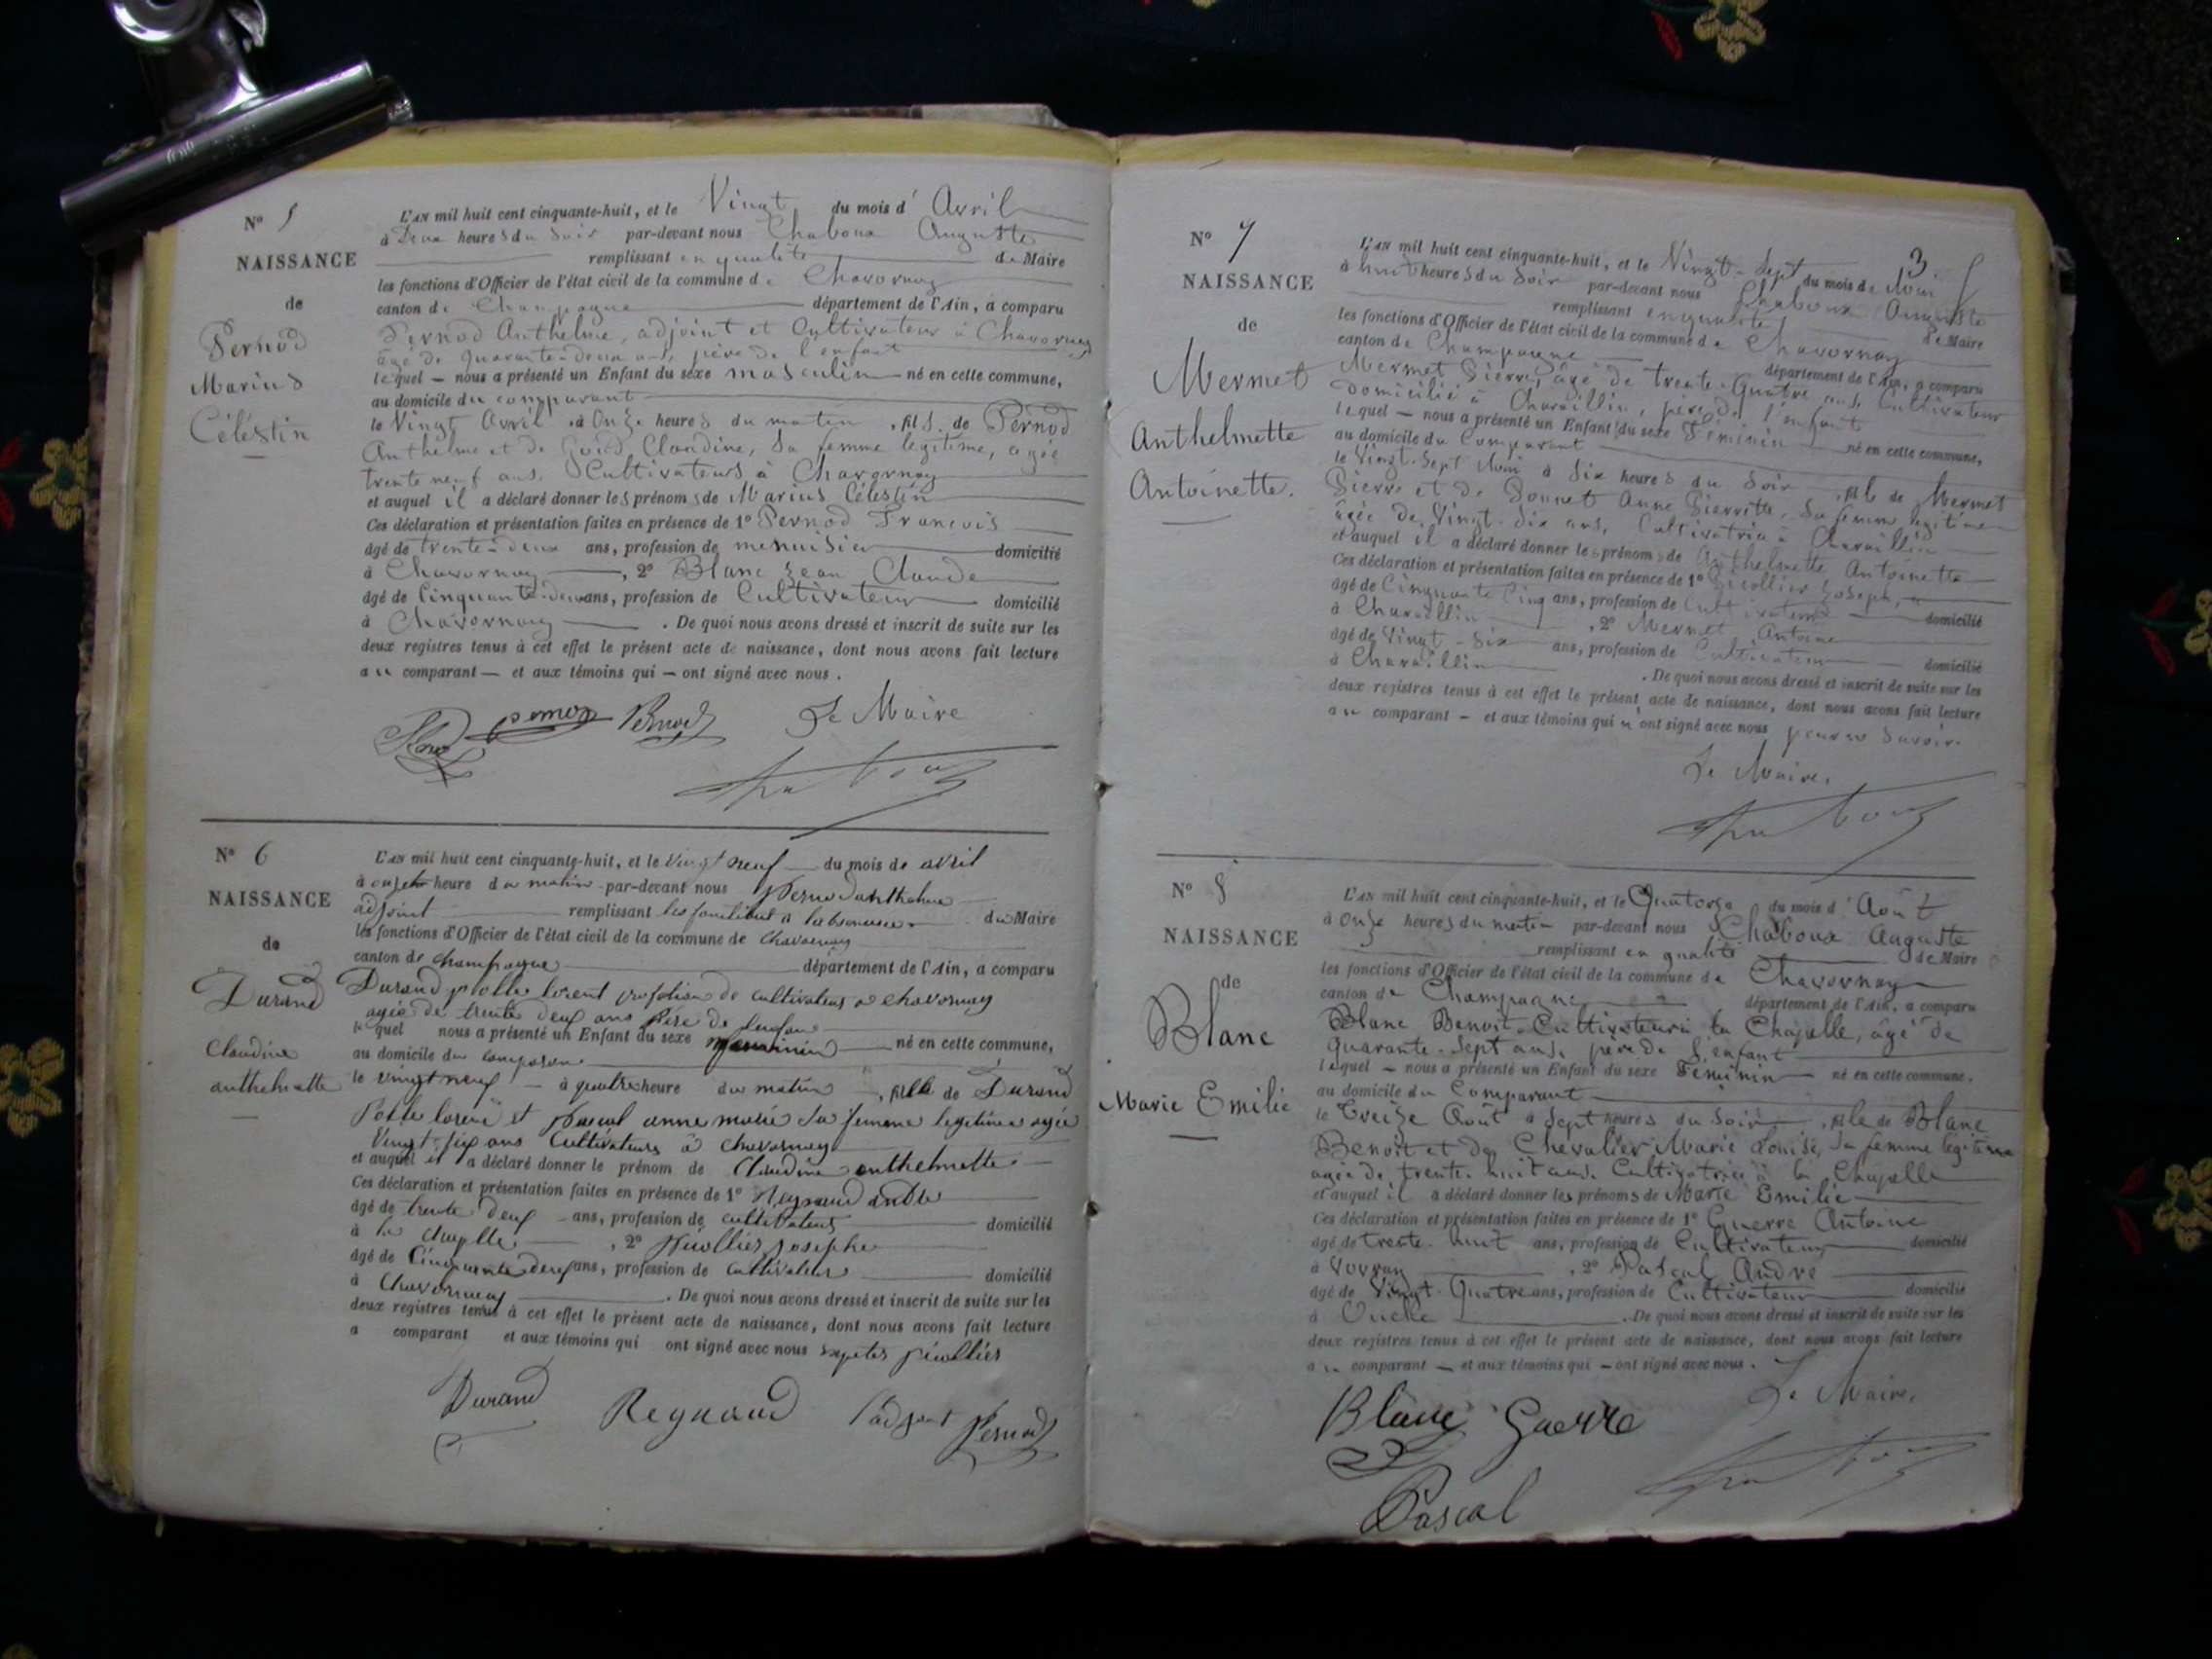 N° 5
NAISSANCE
de
Pernod
Marius
Célestin
L'AN mil huit cent cinquante-huit, et le Vingt du mois d' Avril
à Deux heures du Soir par-devant nous Chaboux Auguste
remplissant en qualité de Maire
les fonctions d'Officier de l'état civil de la commune de Chavornay
canton de Champagne département de l'Ain, a comparu
Pernod Anthelme, adjoint et Cultivateur à Chavornay
âgé de quarante-deux ans, père de l'enfant
lequel nous a présenté un Enfant du sexe masculin né en cette commune,
au domicile du comparant
le Vingt Avril à Onze heures du matin , fils de Pernod
Anthelme et de Claudine, Sa femme légitime, agée
trente neuf ans, Cultivateurs à Chavornay
et auquel il a déclaré donner les prénoms de Marius Célestin
Ces déclaration et présentation faites en présence de 1° Pernod François
âgé de trente-deux ans, profession de menuisier domicilié
à Chavornay , 2° Blanc Jean Claude
âgé de Cinquante-deux ans, profession de Cultivateur domicilié
à Chavornay . De quoi nous avons dressé et inscrit de suite sur les
deux registres tenus à cet effet le présent acte de naissance, dont nous avons fait lecture
au comparant — et aux témoins qui — ont signé avec nous .
Pernod Le Maire
Chaboux
N° 6
NAISSANCE
de
Durand
Claudine
anthelmette
L'AN mil huit cent cinquante-huit, et le Vingt neuf du mois de avril
à heure du matin par-devant nous Pernod anthelme
adjoint remplissant les fonctions a du Maire
les fonctions d'Officier de l'état civil de la commune de Chavornay
canton de Champagne département de l'Ain, a comparu
Durand lorent profession de cultivateur a chavornay
agée de trente deux ans Père de
lequel nous a présenté un Enfant du sexe né en cette commune,
au domicile du
le vingt neuf à quatre heure du matin , fille de Durand
et Pascal anne marie Sa femme legitime agée
Vingt six ans Cultivateurs à chavornay
et auquel il a déclaré donner le prénom de Claudine anthelmette
Ces déclaration et présentation faites en présence de 1° Reynaud
âgé de trente deux ans, profession de cultivateur domicilié
à la chapelle , 2° josephe
âgé de Cinquante deux ans, profession de cultivateur domicilié
à Chavornay . De quoi nous avons dressé et inscrit de suite sur les
deux registres tenus à cet effet le présent acte de naissance, dont nous avons fait lecture
a comparant et aux témoins qui ont signé avec nous
Durand Regnaud l'adjoint Pernod
3
N° 7
NAISSANCE
de
Mermet
Anthelmette
Antoinette.
L'AN mil huit cent cinquante-huit, et le Vingt-Sept du mois de
à huit heures du Soir par-devant nous Chaboux Auguste
remplissant en qualité de Maire
les fonctions d'Officier de l'état civil de la commune de Chavornay
canton de Champagne département de l'Ain, a comparu
Mermet Pierre, âgé de trente-Quatre ans, Cultivateur
domicilié à Charaillin, père de l'enfant
lequel — nous a présenté un Enfant du sexe Féminin né en cette commune,
au domicile du Comparant
le Vingt-Sept à Six heures du Soir , fille de Mermet
Pierre et de Bonnet Anne Pierrette, Sa femme légitime
âgée de Vingt-dix ans, Cultivatrice à Charaillin
et auquel il a déclaré donner les prénoms de Anthelmette Antoinette
Ces déclaration et présentation faites en présence de 1° Joseph,
âgé de Cinquante Cinq ans, profession de Cultivateur domicilié
à Charaillin , 2° Mermet Antoine
âgé de Vingt-Six ans, profession de Cultivateur domicilié
à Charaillin . De quoi nous avons dressé et inscrit de suite sur les
deux registres tenus à cet effet le présent acte de naissance, dont nous avons fait lecture
au comparant — et aux témoins qui n'ont signé avec nous pour ne Savoir.
Le Maire,
Chaboux
N° 8
NAISSANCE
de
Blanc
Marie Emilie
L'AN mil huit cent cinquante-huit, et le Quatorze du mois d' Août
à Onze heures du matin par-devant nous Chaboux Auguste
remplissant en qualité de Maire
les fonctions d'Officier de l'état civil de la commune de Chavornay
canton de Champagne département de l'Ain, a comparu
Blanc Benoit Cultivateur à la Chapelle, âgé de
Quarante-Sept ans, père de l'enfant
lequel — nous a présenté un Enfant du sexe Féminin né en cette commune,
au domicile du Comparant
le Treize Août à Sept heures du Soir , fille de Blanc
Benoit et de Chevalier Marie Louise, Sa femme légitime
agée de trente-huit ans, Cultivatrice à la Chapelle
et auquel il a déclaré donner les prénoms de Marie Emilie
Ces déclaration et présentation faites en présence de 1° Guerre Antoine
âgé de trente-huit ans, profession de Cultivateur domicilié
à Vovray , 2° Pascal André
âgé de Vingt-Quatre ans, profession de Cultivateur domicilié
à Ouche . De quoi nous avons dressé et inscrit de suite sur les
deux registres tenus à cet effet le présent acte de naissance, dont nous avons fait lecture
au comparant — et aux témoins qui — ont signé avec nous .
Le Maire,
Blanc Guerre
Chaboux
Pascal